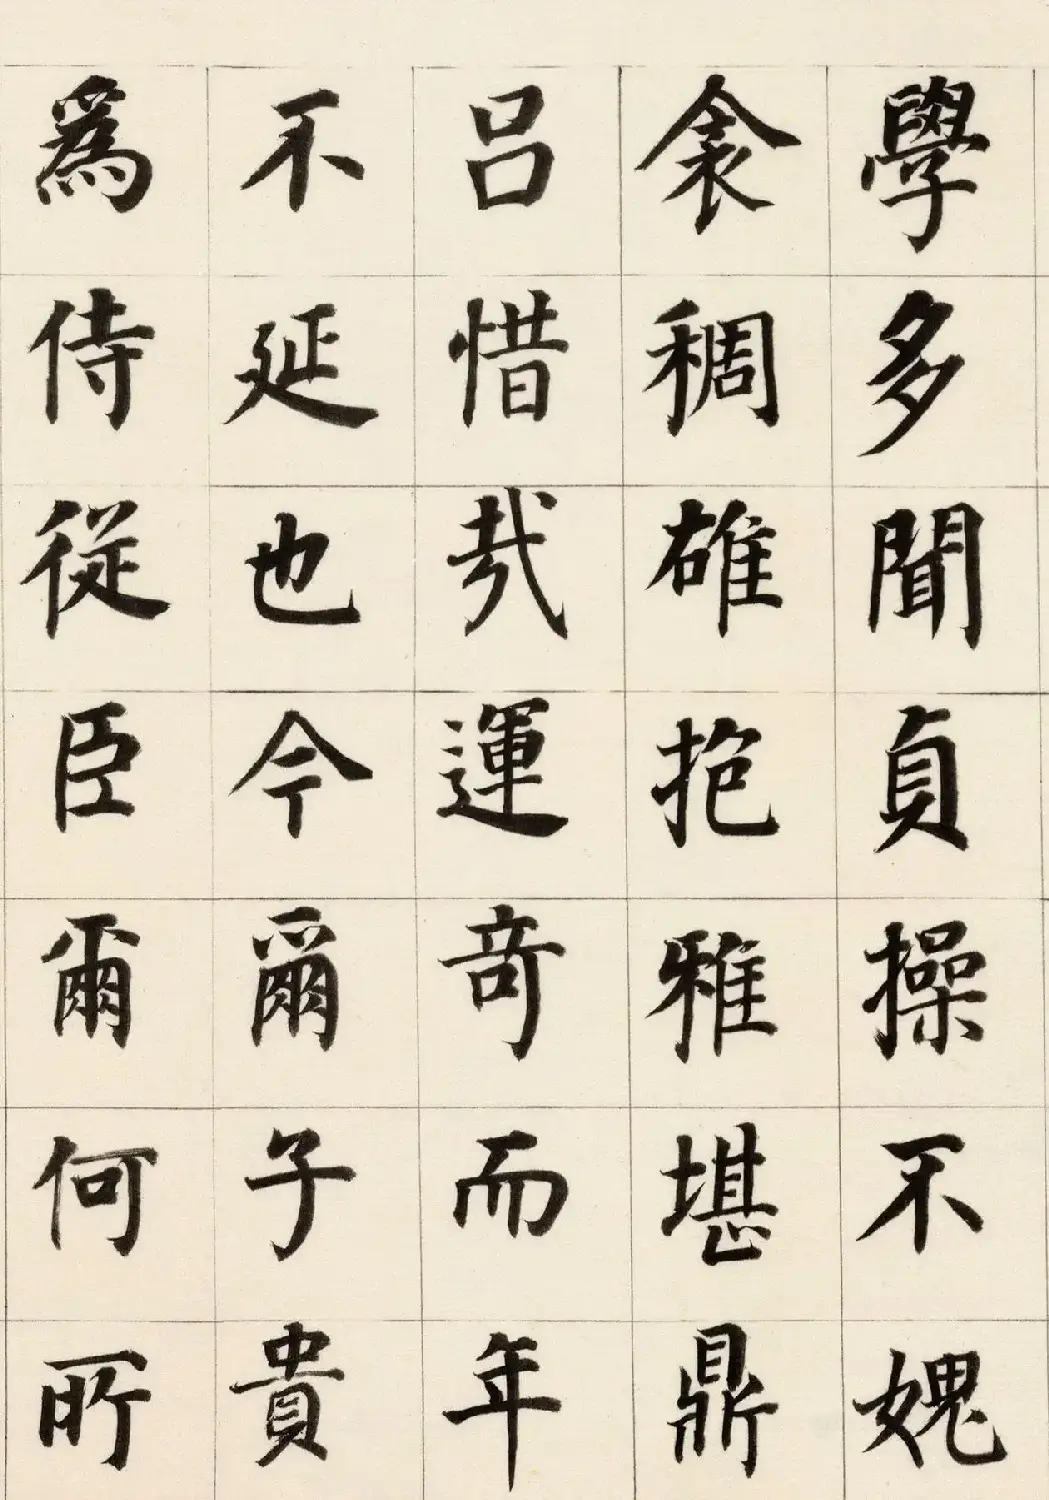 學多聞貞操不媿
衾稠雄抱雅堪鼎
呂惜哉運奇而年
不延也今爾子貴
爲侍從臣爾何所